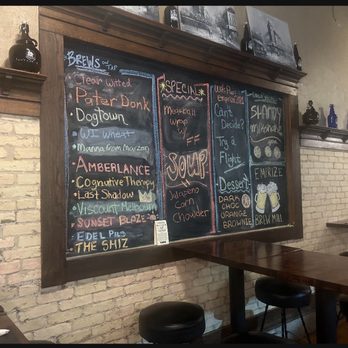 BREWS ON TAP
Jean Witted
Pater Donk
Dogtown
WI Wheat
Manna From Marzen
AMBERLANCE
Cognative Therapy
Last Shadow
Viscount Melbourne
SUNSET BLAZE
EDEL PILS
THE SHIZ
SPECIAL
Meatball
Wrap
w/
FF
SOUP
Jalapeno
Corn
Chowder
Can't
Decide?
Try a
Flight
Dessert
DARK
CHOC
ORANGE
BROWNIE
SHANDY
BREW MILL